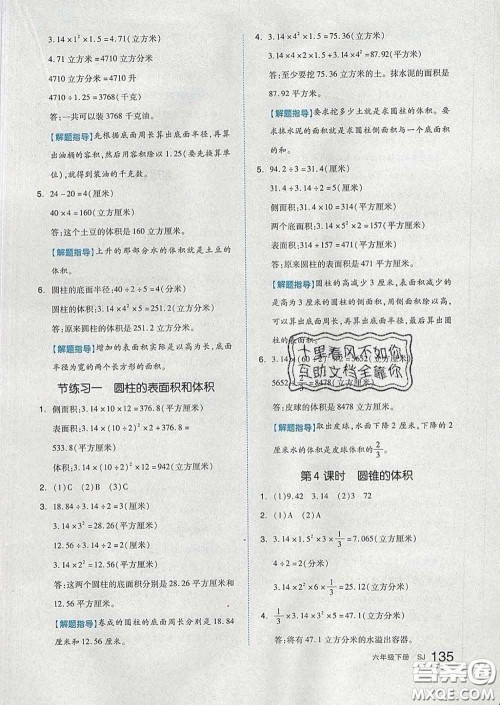 3.14×1²×1.5
=3.14×1.5
=4.71(立方米)
4.71 立方米=4710 立方分米
4710 立方分米=4710 升
4710÷1.25=3768(千克)
答:一共可以装 3768 千克油。
【解题指导】先根据底面周长算出底面半径,再算
出油桶的容积,然后用容积除以 1.25(要先换算单
位),得到装油的千克数。
5. 24-20=4(厘米)
40×4=160(立方厘米)
答:这个土豆的体积是 160 立方厘米。
【解题指导】上升的那部分水的体积就是土豆的
体积。
6. 圆柱的底面半径:40÷2÷5=4(分米)
圆柱的体积:3.14×4²×5=251.2(立方分米)
答:原来圆柱的体积是 251.2 立方分米。
【解题指导】增加的面积实际是以高为长、底面半
径为宽的两个长方形的面积。
节练习一 圆柱的表面积和体积
1. 侧面积:3.14×10×12=376.8(平方厘米)
376.8+
533.8(平方厘米)
2. (1)C (2)B (3)C
3. 18.84÷3.14÷2=3(厘米)
3.14×3²=28.26(平方厘米)
12.56÷3.14÷2=2(厘米)
3.14×2²=12.56(平方厘米)
答:这两个圆柱的底面积分别是 28.26 平方厘米和
12.56 平方厘米。
【解题指导】卷成的圆柱的底面周长分别是 18.84
厘米和 12.56 厘米。
4.
答:至少要挖 75.36 立方米的土。抹水泥的面积是
87.92 平方米。
【解题指导】要求挖多少土就是求圆柱的体积。要
求抹水泥的面积就是求圆柱侧面积与一个底面积的
和。
5. 94.2÷3=31.4(厘米)
31.4÷3.14÷2=5(厘米)
侧面积:31.4×10=314(平方厘米)
两个底面积:3.14×5²×2=157(平方厘米)
表面积:314+157=471(平方厘米)
答:原来圆柱的表面积是 471 平方厘米。
【解题指导】圆柱的高减少 3 厘米,表面积减少的
是高为 3 厘米的圆柱的侧面积,用侧面积除以高,可
以算出底面周长,再算出底面半径,最后求出原来圆
柱的表面积。
十里春风不如你
互助文档全靠你
=8478(立方厘米)
答:皮球的体积是 8478 立方厘米。
【解题指导】取出皮球,水面下降 2 厘米,下降的 2
厘米水的体积是皮球体积的 2/3。
第 4 课时 圆锥的体积
1. (1)9.42 3.14 (2)3 72
2. (1)A (2)A
4÷2=2(分米)
答:将有 47.1 立方厘米的水溢出容器。
六年级下册 SJ 135
答案圈
MXQE.COM